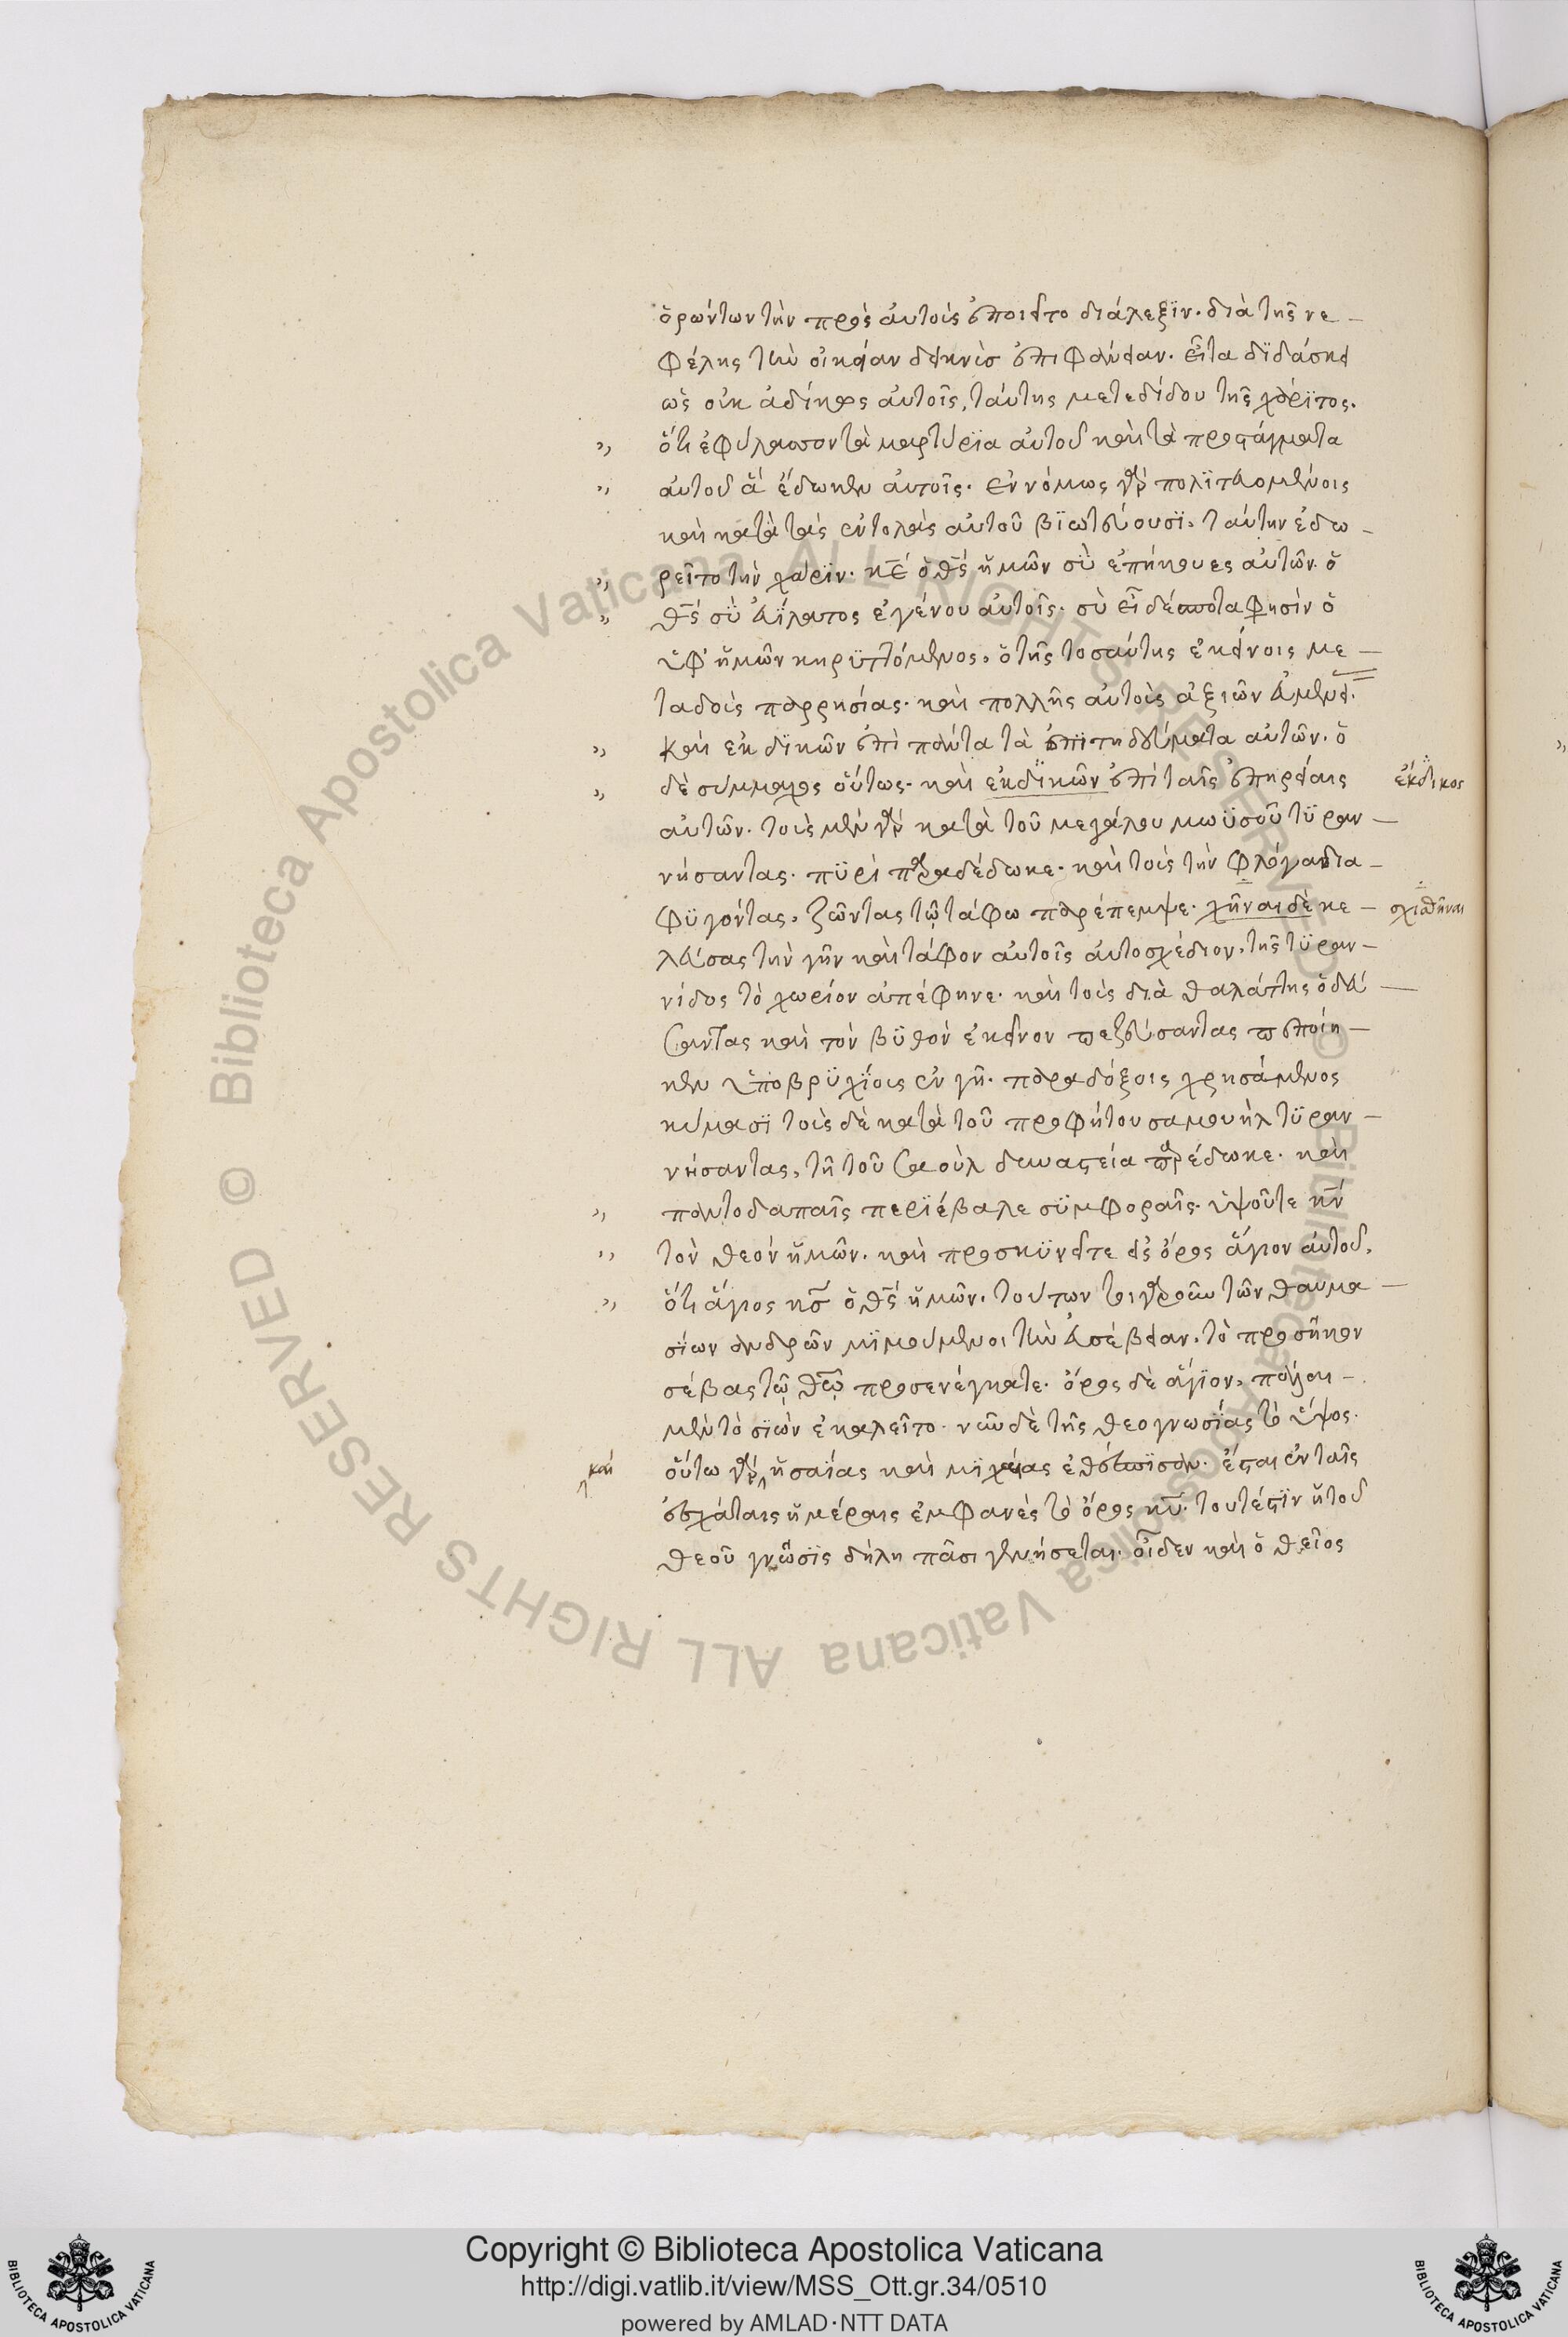 ὁρώντων τὴν πρὸς αὐτοὺς ἐποιεῖτο διάλεξϊν. διὰ τῆς νε –
φέλης τὴν οἰκείαν δεικνὺς ἐπιφάνειαν. εἶτα δϊδάσκει
ὡς οὐκ ἀδίκως αὐτοῖς, ταύτης μετεδίδου τῆς χάρϊτος.
" ὅτι ἐφύλασσον τὰ μαρτύρϊα αὐτοῦ καὶ τὰ προστάγματα
" αὐτοῦ ἃ ἔδωκεν αὐτοῖς. ἐννόμως γὰρ πολϊτευομένοις
καὶ κατὰ τὰς ἐντολὰς αὐτοῦ βϊωτεύουσϊ, ταύτην ἐδω –
" ρεῖτο τὴν χάρϊν. κ̅ε̅ ὁ θ̅ς̅ ἡμῶν σὺ ἐπήκουες αὐτῶν. ὁ
" θ̅ς̅ σὺ εὐΐλατος ἐγένου αὐτοῖς. σὺ εἶ δέσποτα φησὶν ὁ
ὑφ' ἡμῶν κηρϋττόμενος, ὁ τῆς τοσαύτης ἐκείνοις με –
ταδοὺς παρρησίας. καὶ πολλῆς αὐτοὺς ἀξιῶν εὐμενεί.
" καὶ ἐκδϊκῶν ἐπὶ πάντα τὰ ἐπϊτηδεύματα αὐτῶν. ὁ
" δὲ σύμμαχος οὕτως. καὶ ἐκδϊκῶν ἐπὶ ταῖς ἐπηρείαις ἔκδϊκος
αὐτῶν. τοὺς μὲν γὰρ κατὰ τοῦ μεγάλου μωϋσοῦ τϋραν –
νήσαντας. πϋρὶ παραδέδωκε. καὶ τοὺς τὴν φλόγα δια –
φϋγόντας, ζῶντας τῷ τάφω παρέπεμψε. χῆναι δὲ κε – σχισθῆναι
λεύσας τὴν γῆν καὶ τάφον αὐτοῖς αὐτοσχέδιον, τῆς τϋραν –
νίδος τὸ χωρίον ἀπέφηνε. καὶ τοὺς διὰ θαλάττης ὁδεύ –
σαντας καὶ τὸν βϋθὸν ἐκεῖνον πεζεύσαντας πεποίη –
κεν ὑποβρϋχΐοις ἐν γῆ. παραδόξοις χρησάμενος
κύμασϊ τοὺς δὲ κατὰ τοῦ προφήτου σαμουὴλ τϋραν –
νήσαντας, τῆ τοῦ σαοὺλ δυναστεία παρέδωκε. καὶ
" παντοδαπαῖς περϊέβαλε σϋμφοραῖς. ὑψοῦτε κ̅ν̅
" τὸν θεὸν ἡμῶν. καὶ προσκϋνεῖτε εἰς ὄρος ἅγιον αὐτοῦ,
" ὅτι ἅγιος κ̅ς̅ ὁ θ̅ς̅ ἡμῶν. τούτων τοιγαροῦν τῶν θαυμα –
σΐων ἀνδρῶν μϊμούμενοι τὴν εὐσέβειαν. τὸ προσῆκον
σέβας τῷ θ̅ῷ̅ προσενέγκατε. ὄρος δὲ ἅγϊον, πάλαι –
μὲν τὸ σϊὼν ἐκαλεῖτο. νῦν δὲ τῆς θεογνωσΐας τὸ ὕψος.
καὶ οὕτω γὰρ ἡσαΐας καὶ μϊχαίας ἐθέσπϊσαν. ἔσται ἐν ταῖς
ἐσχάταις ἡμέραις ἐμφανὲς τὸ ὄρος κ̅υ̅. τουτέστϊν ἡ τοῦ
θεοῦ γνῶσϊς δήλη πᾶσι γενήσεται. οἶδεν καὶ ὁ θεῖος
© Biblioteca Apostolica Vaticana ALL RIGHTS RESERVED © Biblioteca Apostolica Vaticana ALL RIGHTS RESERVED
Copyright © Biblioteca Apostolica Vaticana
http://digi.vatlib.it/view/MSS_Ott.gr.34/0510
powered by AMLAD·NTT DATA
BIBLIOTECA APOSTOLICA VATICANA
BIBLIOTECA APOSTOLICA VATICANA